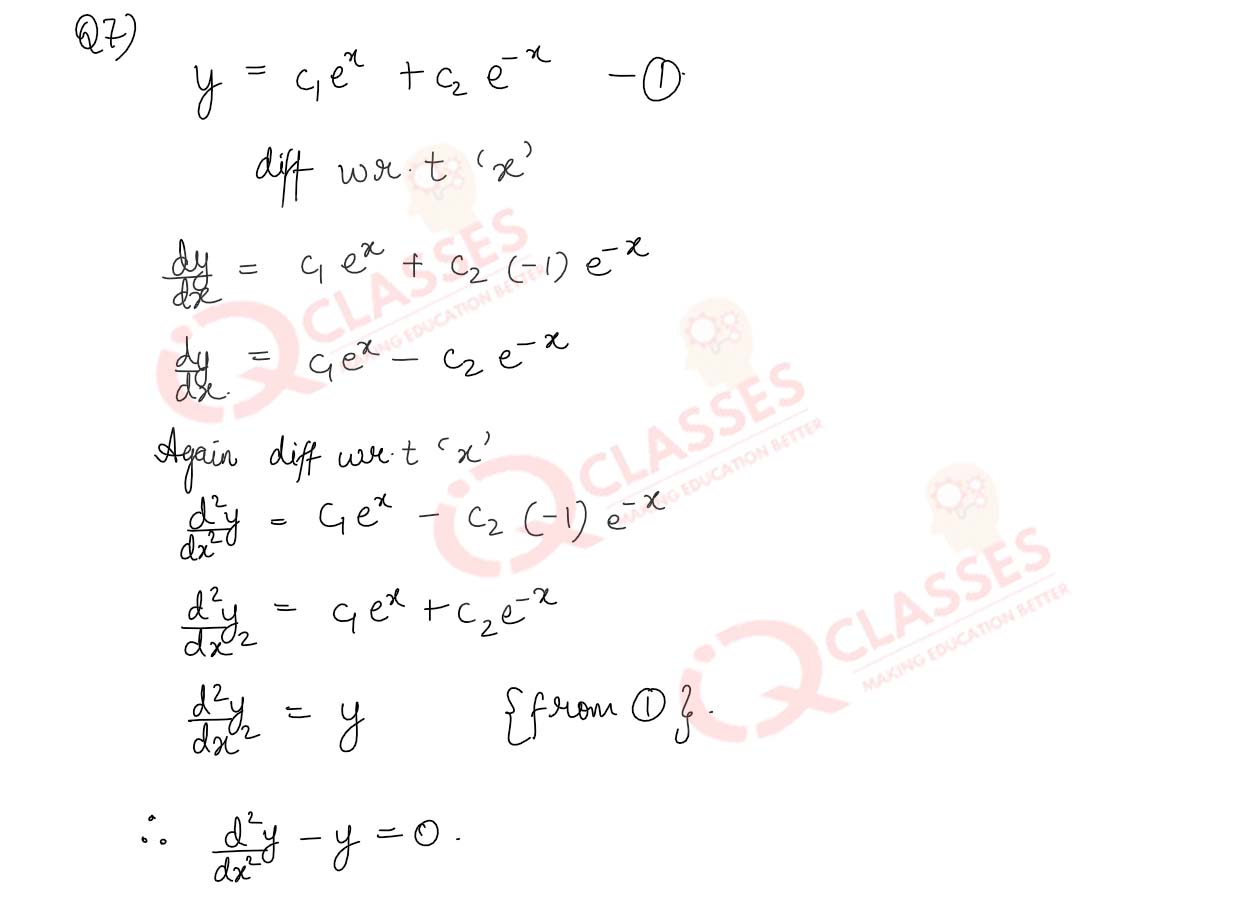 Q7)
y = c₁eˣ + c₂ e⁻ˣ – ①
diff w.r.t ‘x’
dy/dx = c₁ eˣ + c₂ (-1) e⁻ˣ
dy/dx = c₁eˣ – c₂ e⁻ˣ
Again diff w.r.t ‘x’
d²y/dx² = c₁eˣ – c₂ (-1) e⁻ˣ
d²y/dx² = c₁eˣ + c₂e⁻ˣ
d²y/dx² = y {from ①}.
∴ d²y/dx² – y = 0.
iQ CLASSES
MAKING EDUCATION BETTER
iQ CLASSES
MAKING EDUCATION BETTER
iQ CLASSES
MAKING EDUCATION BETTER